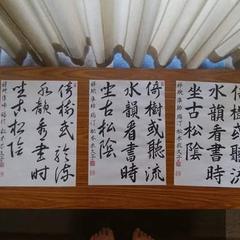 倚樹或聽流
水韻看書時
坐古松陰
倚樹或聽流
水韻看書時
坐古松陰
倚樹或聽流
水韻看書時
坐古松陰